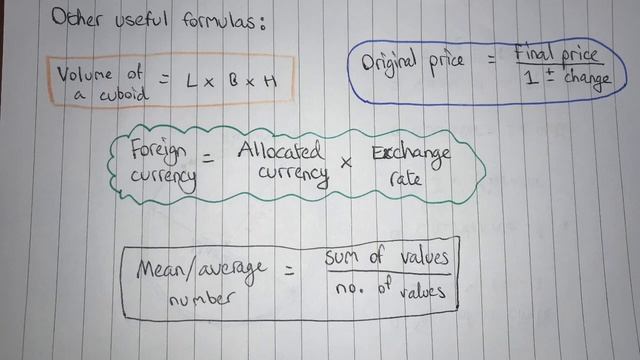 Other useful formulas:
Volume of a cuboid = L x B x H
Original price = Final price / 1 ± change
Foreign currency = Allocated currency x Exchange rate
Mean/average number = sum of values / no. of values